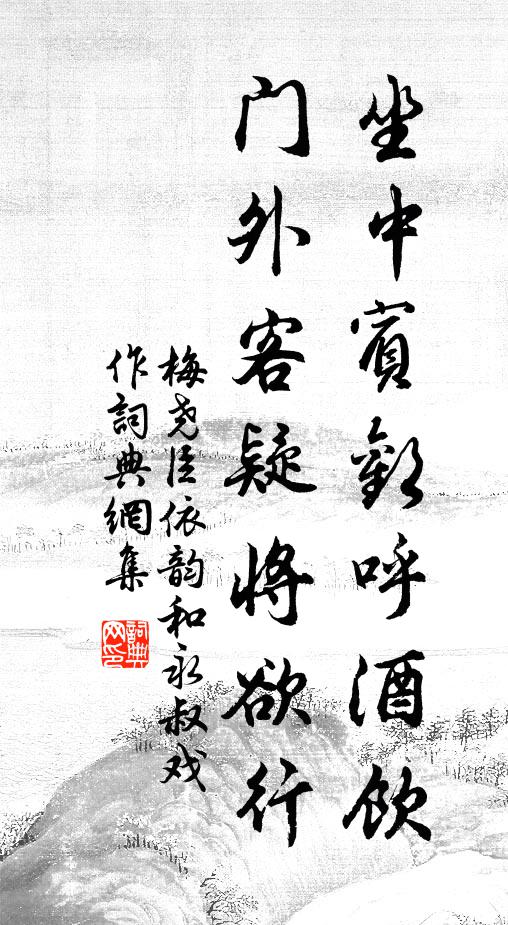 坐中賓歡呼酒飲
門外客疑將欲行
梅尧臣依韵和永叔戏
作詞典網集
詞典網印